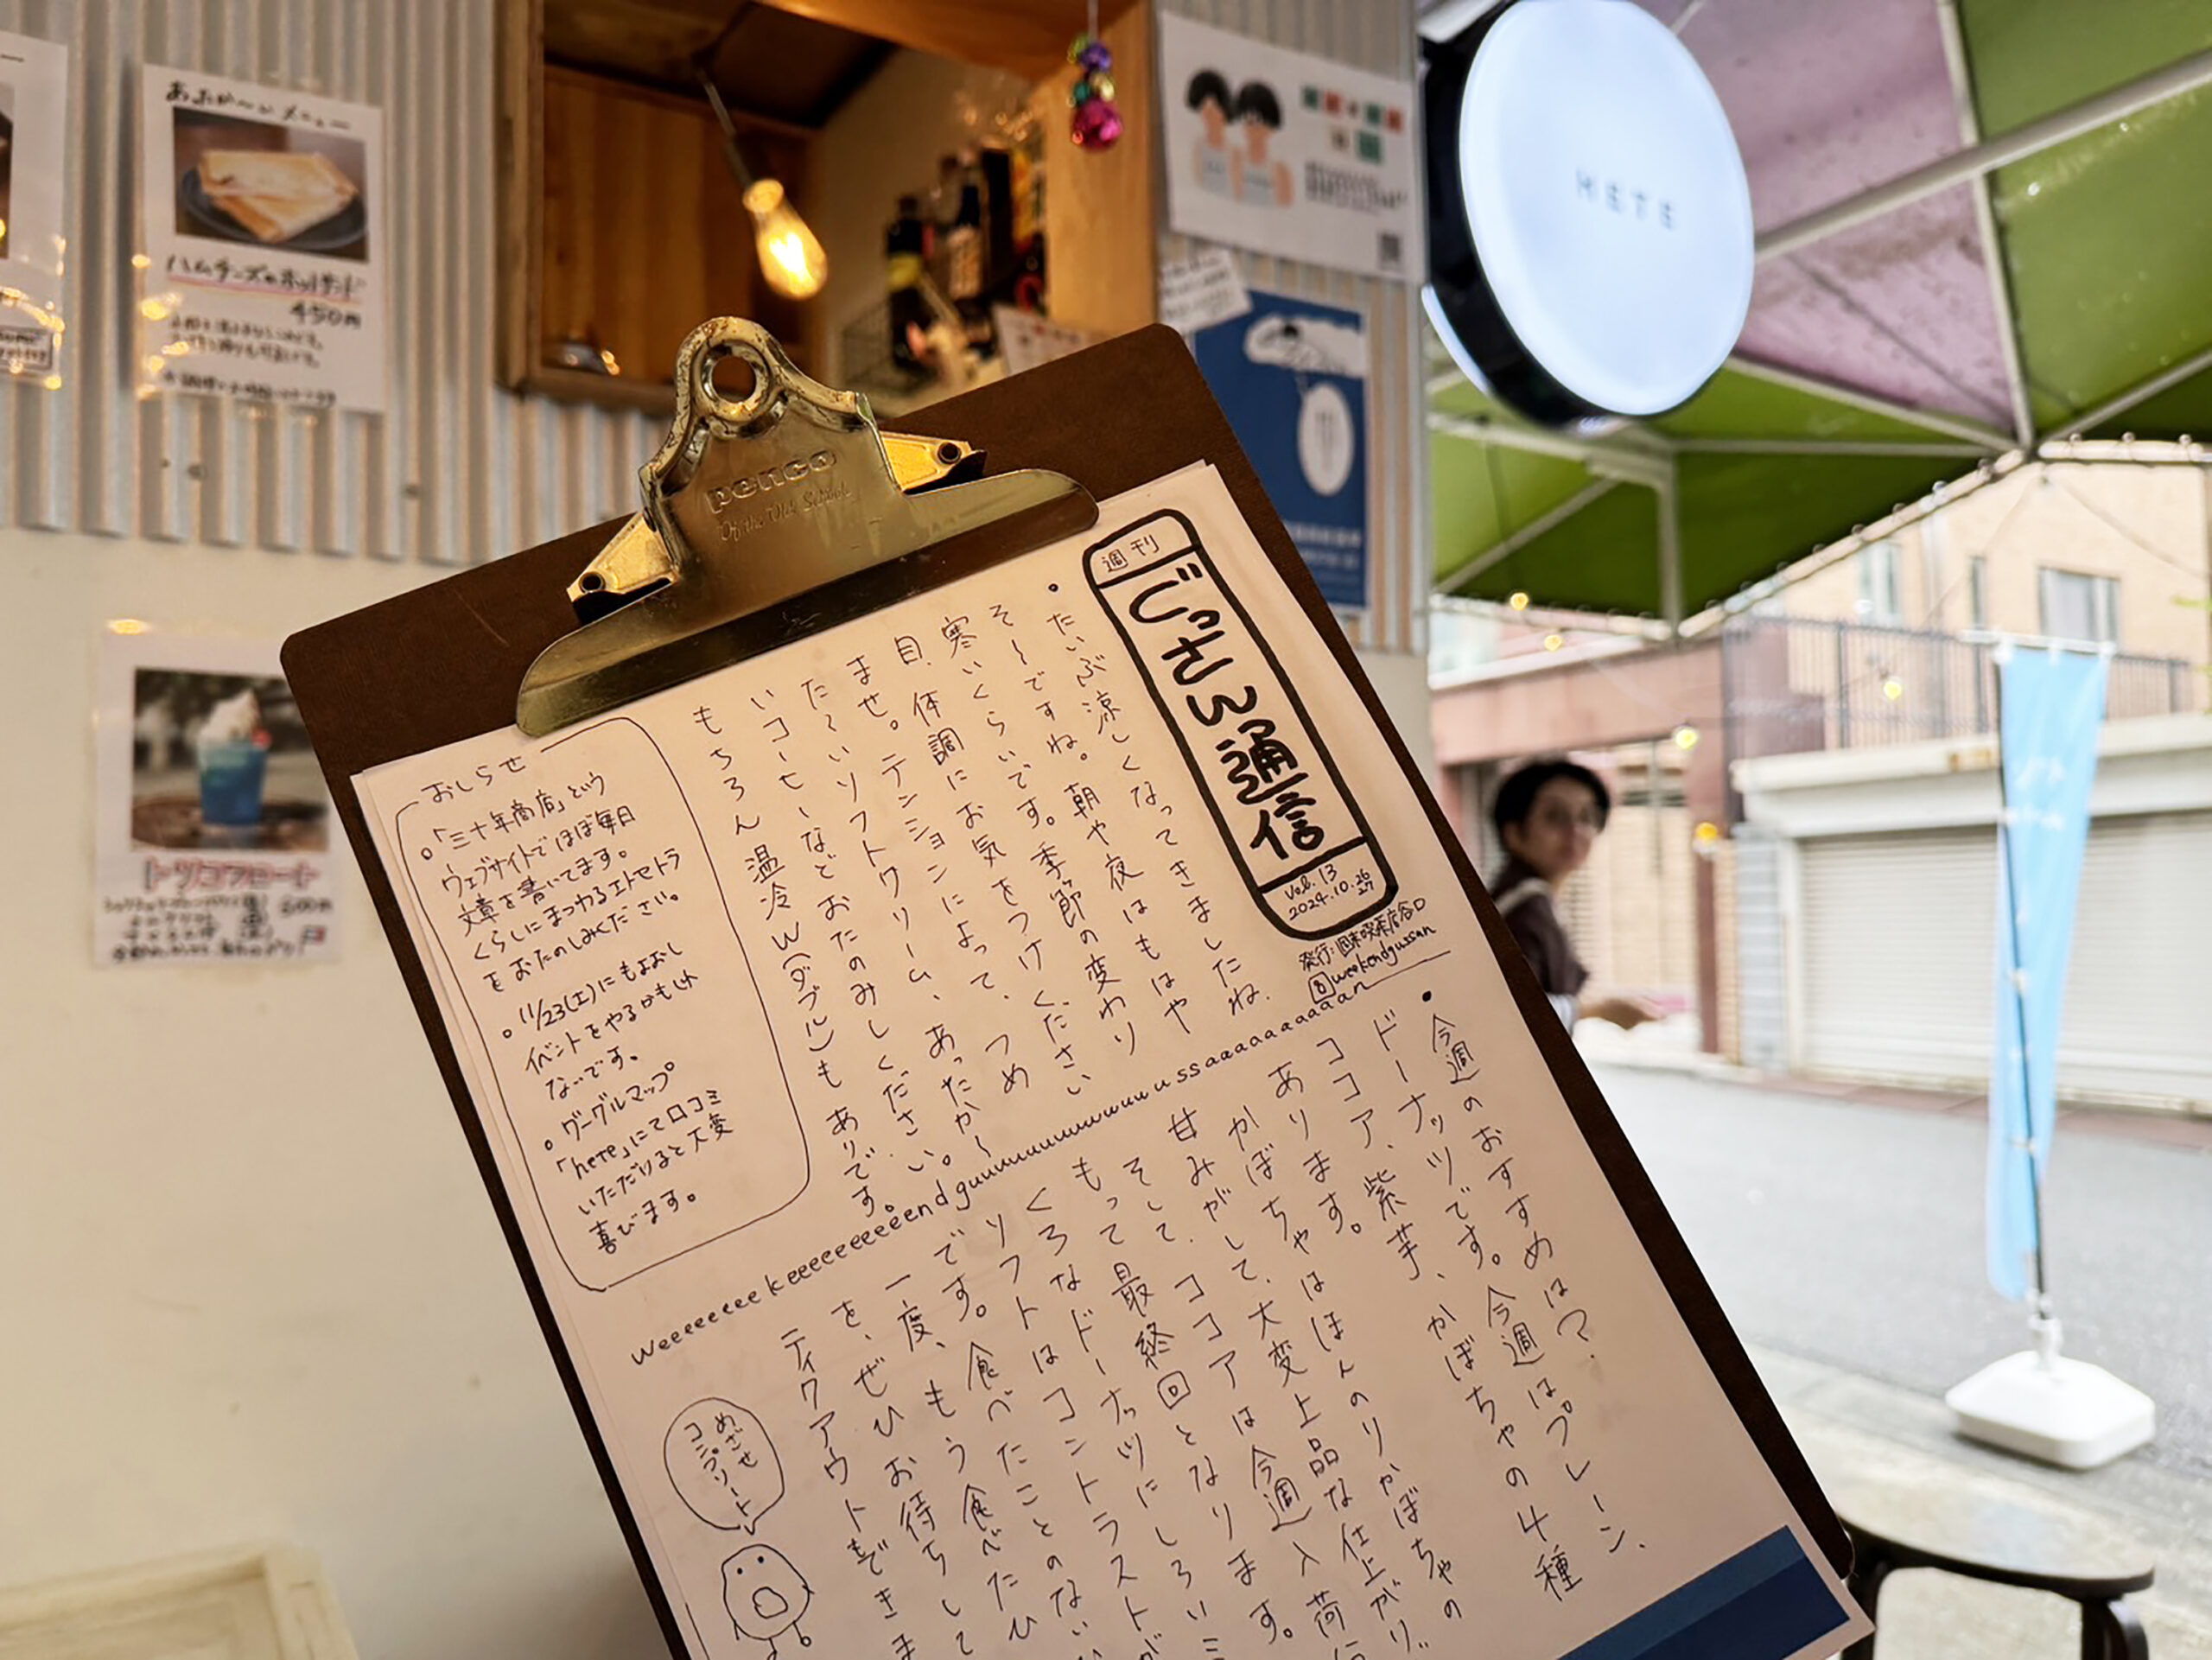 週刊
ごっさん通信
Vol.13
2024.10.26
27
発行:週末喫茶店谷口
@weekendgussan
・だいぶ涼しくなってきましたね。
そ〜ですね。朝や夜はもはや
寒いくらいです。季節の変わり
目、体調にお気をつけください
ませ。テンションによって、つめ
た〜いソフトクリーム、あったか〜
いコーヒーなどおたのみください。
もちろん温冷W(ダブル)もありです。
おしらせ
。「三十年商店」という
ウェブサイトでほぼ毎日
文章を書いてます。
くらしにまつわるエトセトラ
をおたのしみください。
。11/23(土)にもよおし
イベントをやるかもしれ
ないです。
。グーグルマップ
「hete」にて口コミ
いただけると大変
喜びます。
weeeeeeekeeeeeeeeeend guuuuuuuuuuuussaaaaaaaaaan
・今週のおすすめは?
ドーナッツです。今週はプレーン、
ココア、紫芋、かぼちゃの4種
あります。
かぼちゃはほんのりかぼちゃの
甘みがして、大変上品な仕上がり
そして、ココアは今週入荷
もって最終回となります。
くろなドーナッツにしろいミ
ソフトはコントラストが
です。食べたことのない
一度、もう食べたひ
を、ぜひお待ちして
ティクアウトもできま
めざせ
コンプリート
penco
Old School
HETE
メニュー
ハムチーズのホットサンド
450円
トツコフロート
600円